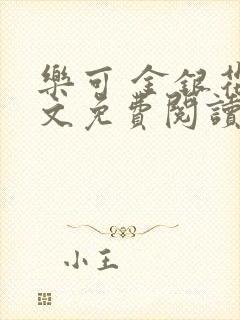 樂可 金銀花
文免費閱讀
小王